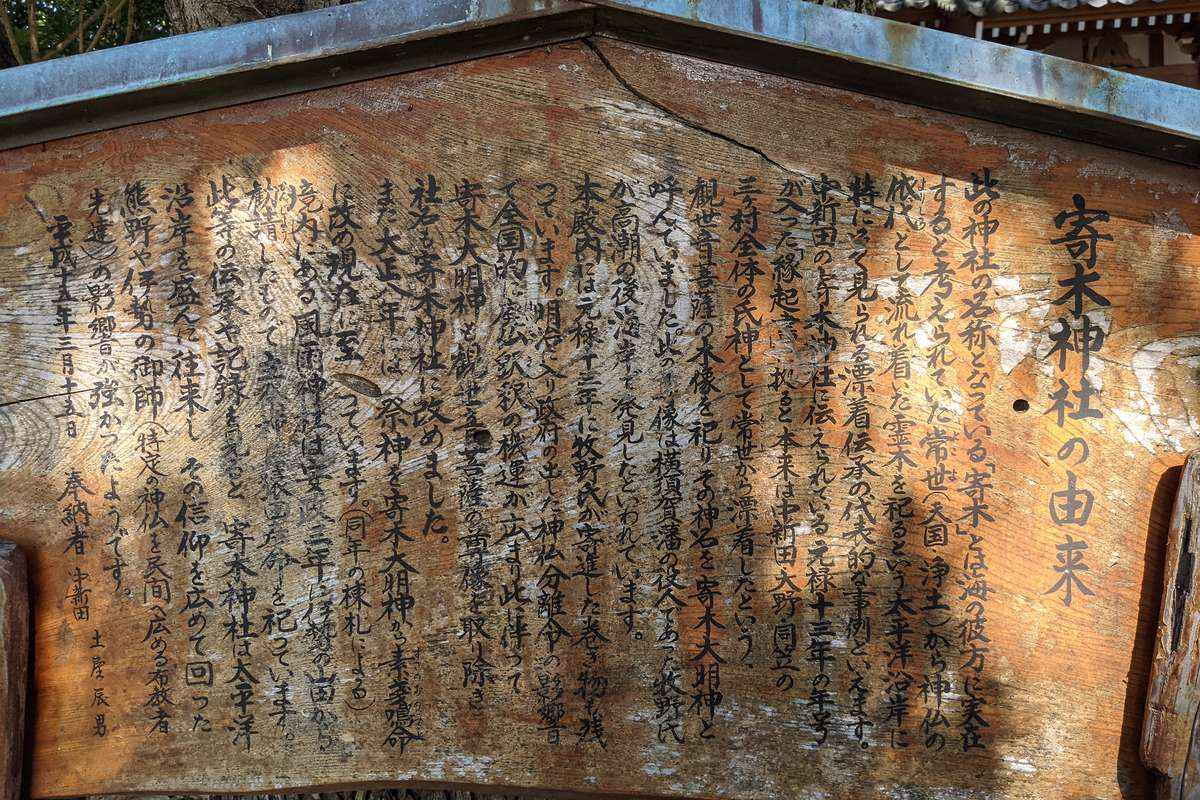 寄木神社の由来
此の神社の名称となっている「寄木」とは海の彼方に実在
すると考えられていた常世(天国・浄土)から神仏の
依代として流れ着いた霊木を祀るという太平洋沿岸に
特によって見られる漂着伝承の代表的な事例といえます。
中新田の寄木神社に伝えられている元禄十三年の年号
が入った「縁起書」に拠ると本来は中新田・大野・同笠の
三ヶ村全体の氏神として常世から漂着したという、
観世音菩薩の木像を祀りその神名を寄木大明神と
呼んでいました。此の木像は横須賀藩の役人であった牧野氏
が高潮の後海岸で発見したといわれています。
本殿内には元禄十三年に牧野氏が寄進した巻き物も残
っています。明治に入り政府の出した神仏分離令の影響
で全国的に廃仏釈の機運が広まり此に伴って
寄木大明神も観世音菩薩の首像を取り除き
社名も寄木神社に改めました。
また大正八年には祭神を寄木大明神から素戔嗚命
に改め現在に至っています。(同年の棟札による)
境内にある風雨神社は安政三年に伊勢の山田から
勧請したもので立木神を祀っています。
此等の伝承や記録を見ると 寄木神社は太平洋
沿岸を盛んに往来し その信仰を広めて回った
熊野や伊勢の御師(特定の神仏を民間へ広める布教者
先達)の影響が強かったようです。
平成十五年三月十五日 奉納者 中新田 土屋辰男